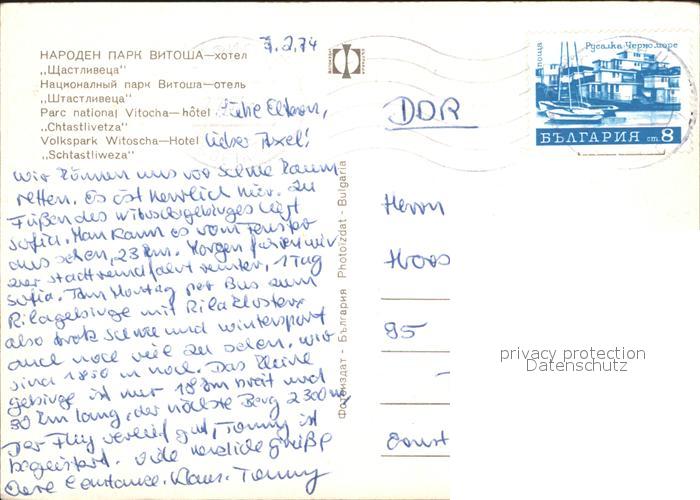 НАРОДЕН ПАРК ВИТОША—хотел
„Щастливеца"
Национальный парк Витоша—отель
„Штастливеца"
Parc national Vitocha—hôtel
„Chtastlivetza"
Volkspark Witoscha—Hotel
„Schtastliweza"
7.2.74
Liebe Eltern,
lieber Axel!
wir können uns vor Schnee kaum
retten. Es ist herrlich hier. Zu
Füßen des Witoschagebirges liegt
Sofia. Man kann es vom Fenster
aus sehen, 23 km. Morgen fahren wir
zur Stadtrundfahrt runter, 1 Tag
Sofia. Am Montag per Bus zum
Rilagebirge mit Rilakloster
also trotz Schnee und Wintersport
auch noch viel zu sehen. Wir
sind 1850 m hoch. Das kleine
gebirge ist nur 18 km breit und
30 km lang, der höchste Berg 2300 m.
Der Flug verlief gut, Tommy ist
begeistert. Viele herzliche Grüße
Eure Constance, Klaus, Tommy
Фотоиздат - България Photoizdat - Bulgaria
DDR
Herrn
95
поща
Русалка-Черно море
БЪЛГАРИЯ ст. 8
privacy protection
Datenschutz